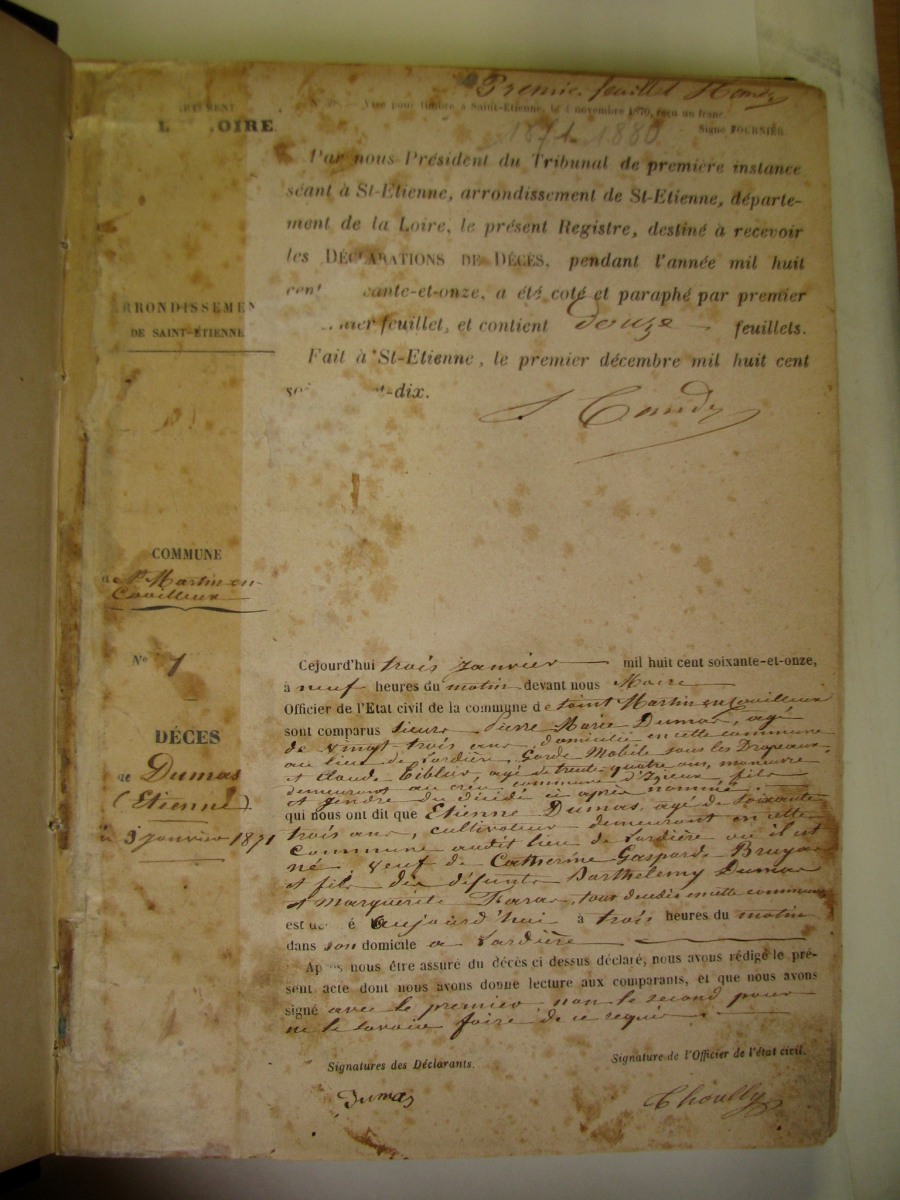 Premier feuillet
ARTEMENT
L OIRE.
Visé pour timbre à Saint-Etienne, le 4 novembre 1870, reçu un franc.
1871-1880
Signé FOURNIER.
Par nous Président du Tribunal de première instance
séant à St-Etienne, arrondissement de St-Etienne, départe-
ment de la Loire, le présent Registre, destiné à recevoir
les DÉCLARATIONS DE DÉCÈS, pendant l'année mil huit
cent ante-et-onze, a été coté et paraphé par premier
nier feuillet, et contient douze feuillets.
Fait à St-Etienne, le premier décembre mil huit cent
soi t-dix.
RRONDISSEMEN
DE SAINT-ÉTIENNE
COMMUNE
de St Martin-en-
Coailleux
No 1
DÉCES
de Dumas
(Etienne)
3 Janvier 1871
Cejourd'hui trois Janvier mil huit cent soixante-et-onze,
à neuf heures du matin devant nous Maire
Officier de l'Etat civil de la commune de Saint Martin en Coailleux
sont comparus sieurs Pierre Marie Dumas, agé
de vingt-trois ans, domicilié en cette commune
au lieu de Lardière, Garde Mobile sous les Drapeaux,
et Claude agé de trente-quatre ans, manœuvre
demeurant au creu, commune d'Izieux, fils
et gendre du décédé ci après nommé.
qui nous ont dit que Etienne Dumas, agé de soixante
trois ans, cultivateur demeurant en cette
commune audit lieu de Lardière ou il est
né, veuf de Catherine Gasparde Bruyas
et fils des défunts Barthelemy Dumas
et Marguerite tous décédés en cette commune
est dé é aujourd'hui à trois heures du matin
dans son domicile a Lardière
Après nous être assuré du décès ci dessus déclaré, nous avons rédigé le pré-
sent acte dont nous avons donné lecture aux comparants, et que nous avons
signé avec le premier non le second pour
ne le savoir faire de ce requis.
Signatures des Déclarants.
Signature de l'Officier de l'état civil.
Dumas
Choully